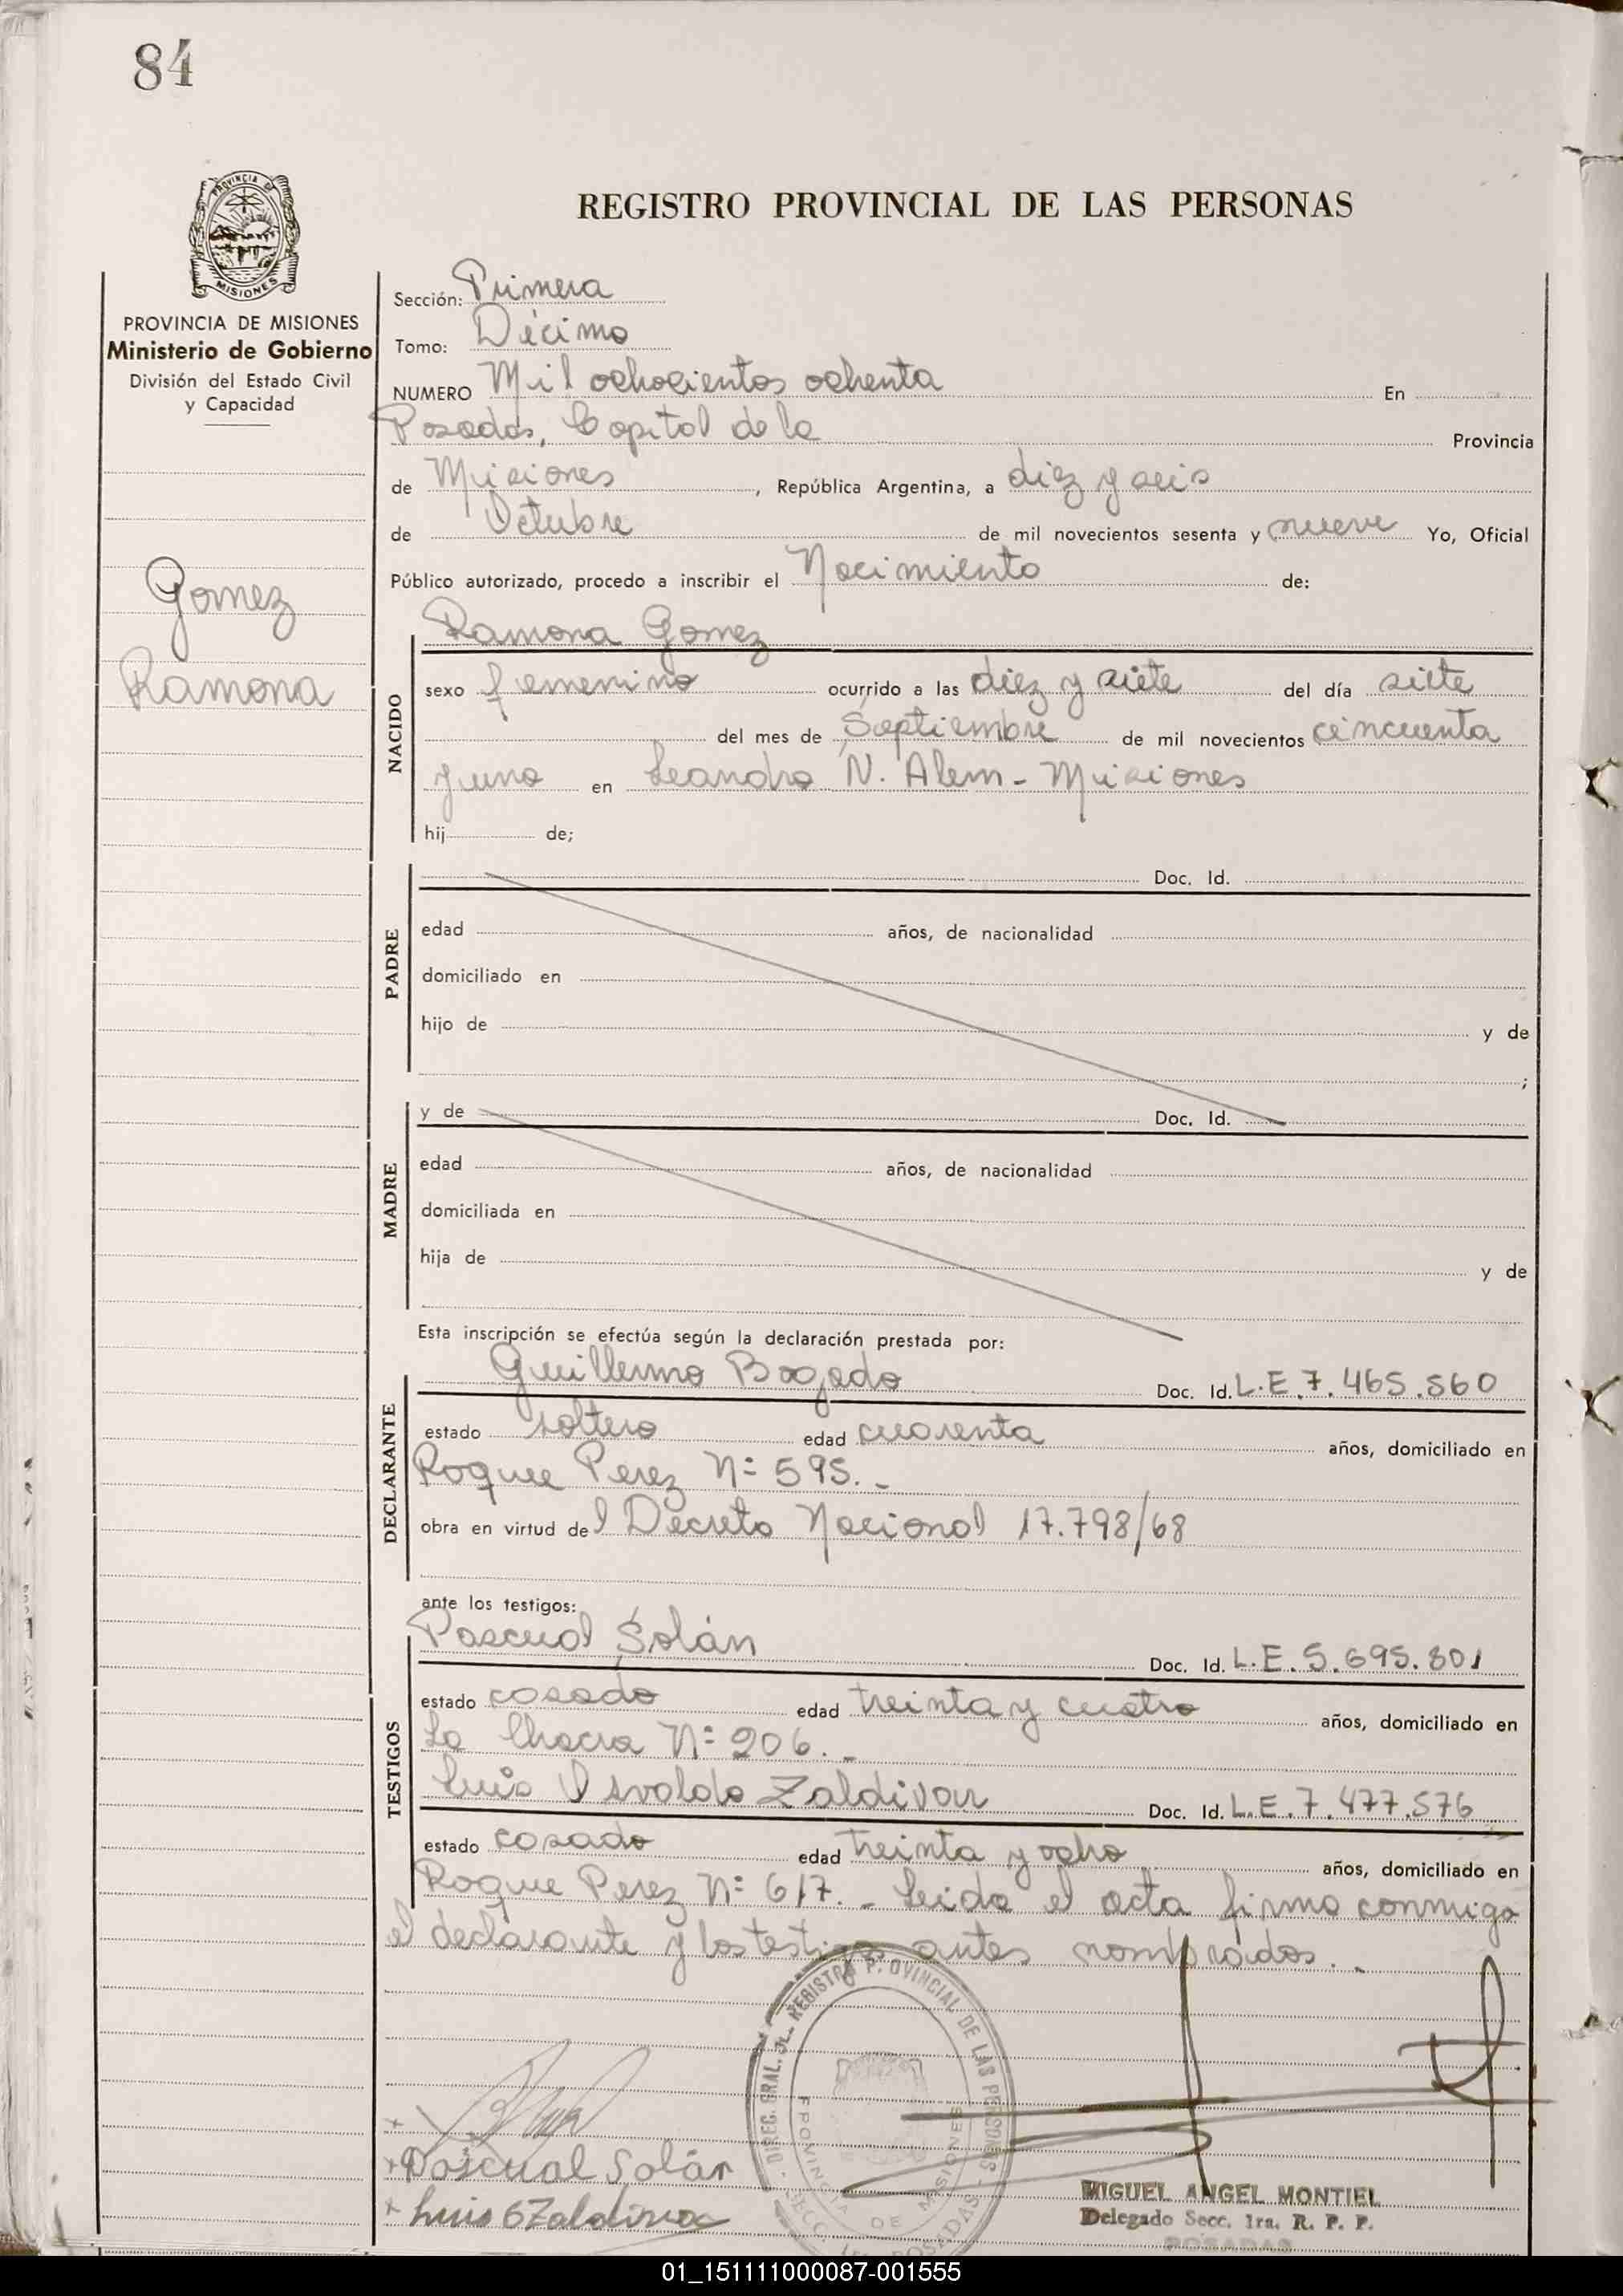 84
PROVINCIA DE
MISIONES
REGISTRO PROVINCIAL DE LAS PERSONAS
PROVINCIA DE MISIONES
Ministerio de Gobierno
División del Estado Civil
y Capacidad
Gomez
Ramona
Sección: Primera
Tomo: Décimo
NUMERO Mil ochocientos ochenta En
Posadas, Capital de la Provincia
de Misiones, República Argentina, a diez y seis
de Octubre de mil novecientos sesenta y nueve Yo, Oficial
Público autorizado, procedo a inscribir el Nacimiento de:
NACIDO
Ramona Gomez
sexo femenino ocurrido a las diez y siete del día siete
del mes de Septiembre de mil novecientos cincuenta
y uno en Leandro N. Alem - Misiones
hij de;
PADRE
Doc. Id.
edad años, de nacionalidad
domiciliado en
hijo de y de
;
MADRE
y de Doc. Id.
edad años, de nacionalidad
domiciliada en
hija de y de
Esta inscripción se efectúa según la declaración prestada por:
DECLARANTE
Guillermo Bogado Doc. Id. L.E.7.465.560
estado soltero edad cuarenta años, domiciliado en
Roque Perez Nº 595.-
obra en virtud del Decreto Nacional 17.798/68
ante los testigos:
TESTIGOS
Pascual Solán Doc. Id. L.E.5.695.801
estado casado edad treinta y cuatro años, domiciliado en
La Chacra Nº 206.-
Luis Osvaldo Zaldivar Doc. Id. L.E.7.477.576
estado casado edad treinta y ocho años, domiciliado en
Roque Perez Nº 617.- Leido el acta firma conmigo
el declarante y los testigos antes nombrados.-
DIREC. GRAL. DEL REGISTRO PROVINCIAL DE LAS PERSONAS
PROVINCIA DE MISIONES
SECC. POSADAS
+
+ Pascual Solán
+ Luis O Zaldivar
MIGUEL ANGEL MONTIEL
Delegado Secc. 1ra. R. P. P.
POSADAS
01_151111000087-001555